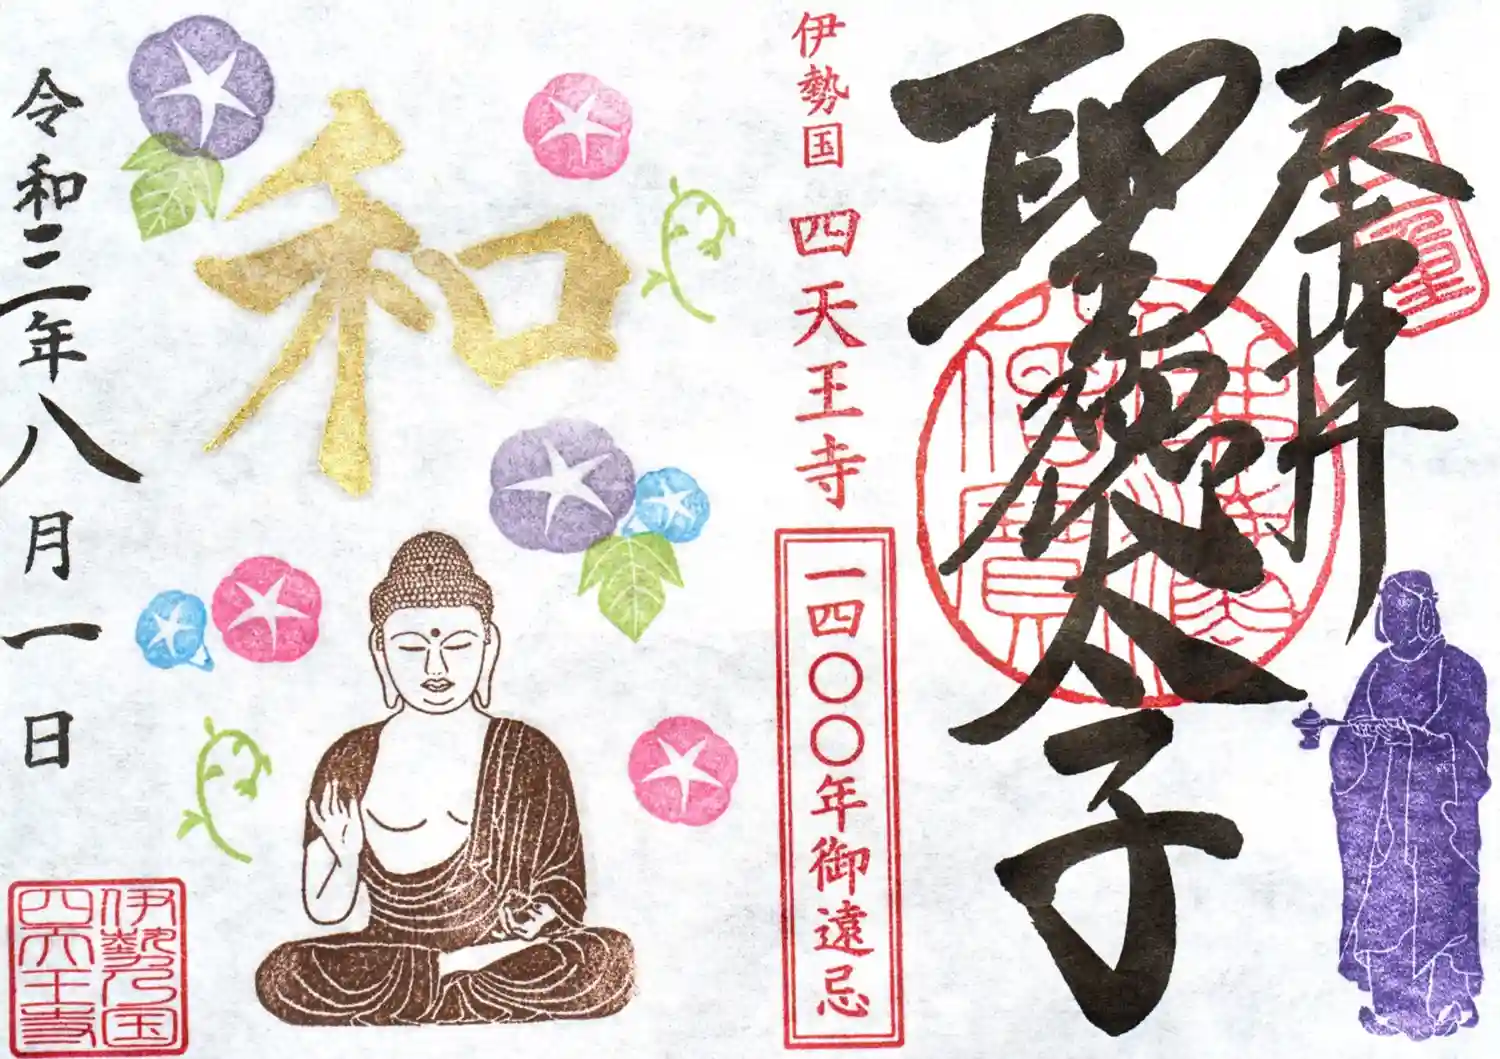 奉拝
聖徳太子
伊勢国 四天王寺
一四〇〇年御遠忌
和
令和三年八月一日
伊勢乃国
四天王寺